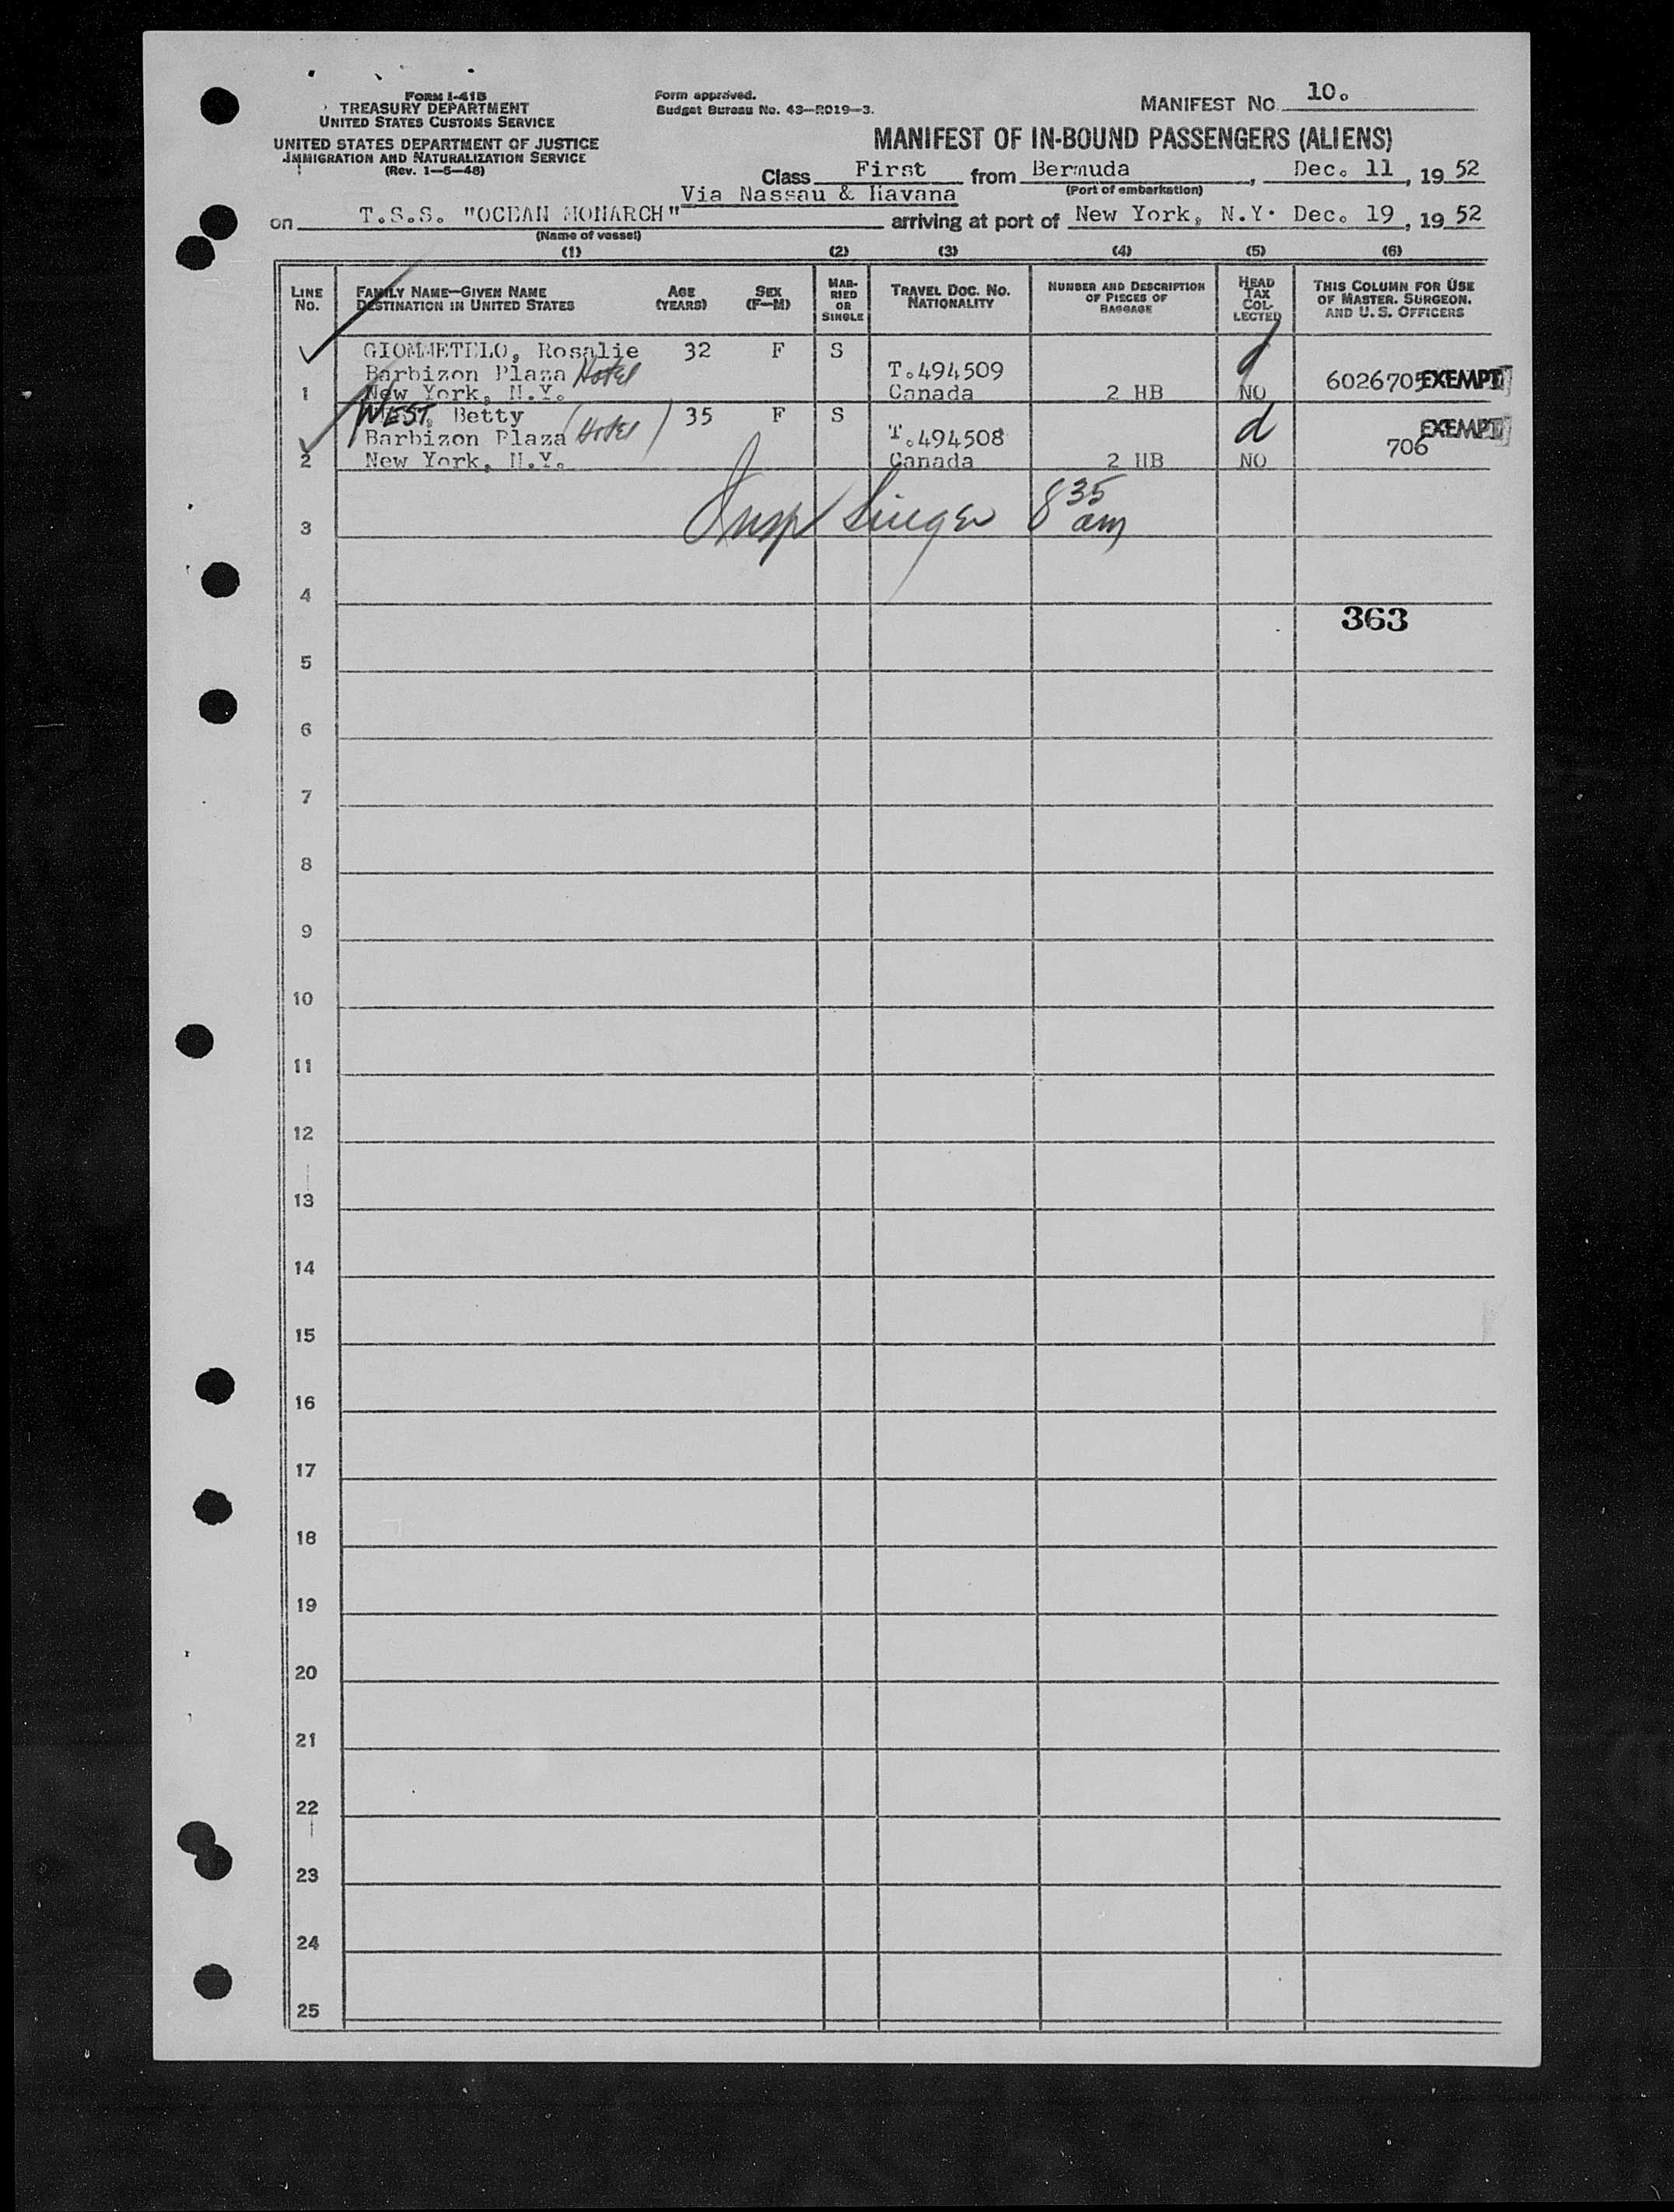 FORM I-415
TREASURY DEPARTMENT
UNITED STATES CUSTOMS SERVICE
UNITED STATES DEPARTMENT OF JUSTICE
IMMIGRATION AND NATURALIZATION SERVICE
(Rev. 1-5-48)
Form approved.
Budget Bureau No. 43-R019-3.
MANIFEST NO. 10.
MANIFEST OF IN-BOUND PASSENGERS (ALIENS)
Class First from Bermuda, Dec. 11, 19 52
(Port of embarkation)
Via Nassau & Havana
on T.S.S. "OCEAN MONARCH" arriving at port of New York, N.Y. Dec. 19, 19 52
(Name of vessel)
(1) (2) (3) (4) (5) (6)
LINE NO.
FAMILY NAME—GIVEN NAME
DESTINATION IN UNITED STATES
AGE (YEARS)
SEX (F—M)
MARRIED OR SINGLE
TRAVEL DOC. NO.
NATIONALITY
NUMBER AND DESCRIPTION OF PIECES OF BAGGAGE
HEAD TAX COLLECTED
THIS COLUMN FOR USE OF MASTER, SURGEON, AND U. S. OFFICERS
GIOMMETELO, Rosalie 32 F S
Barbizon Plaza Hotel T.494509 6026705 EXEMPT
1 New York, N.Y. Canada 2 HB NO
WEST, Betty 35 F S d EXEMPT
Barbizon Plaza (Hotel) T.494508 706
2 New York, N.Y. Canada 2 HB NO
Insp Singer 8 35 am
3
4
363
5
6
7
8
9
10
11
12
13
14
15
16
17
18
19
20
21
22
23
24
25